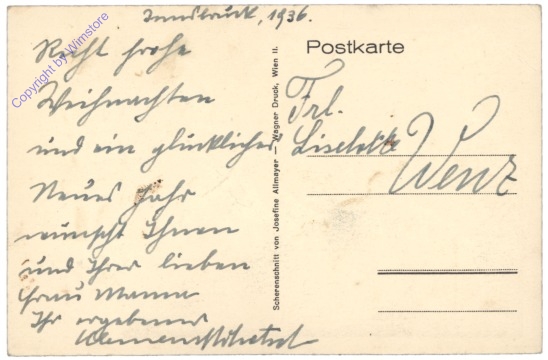 Innsbruck, 1936.
Recht frohe
Weihnachten
und ein glückliches
Neues Jahr
wünscht Ihnen
und Ihrer lieben
Frau Mama
Ihr ergebener
Postkarte
Frl.
Liselotte
Wenz
Scherenschnitt von Josefine Allmayer — Wagner Druck, Wien II.
Copyright by Wimstore